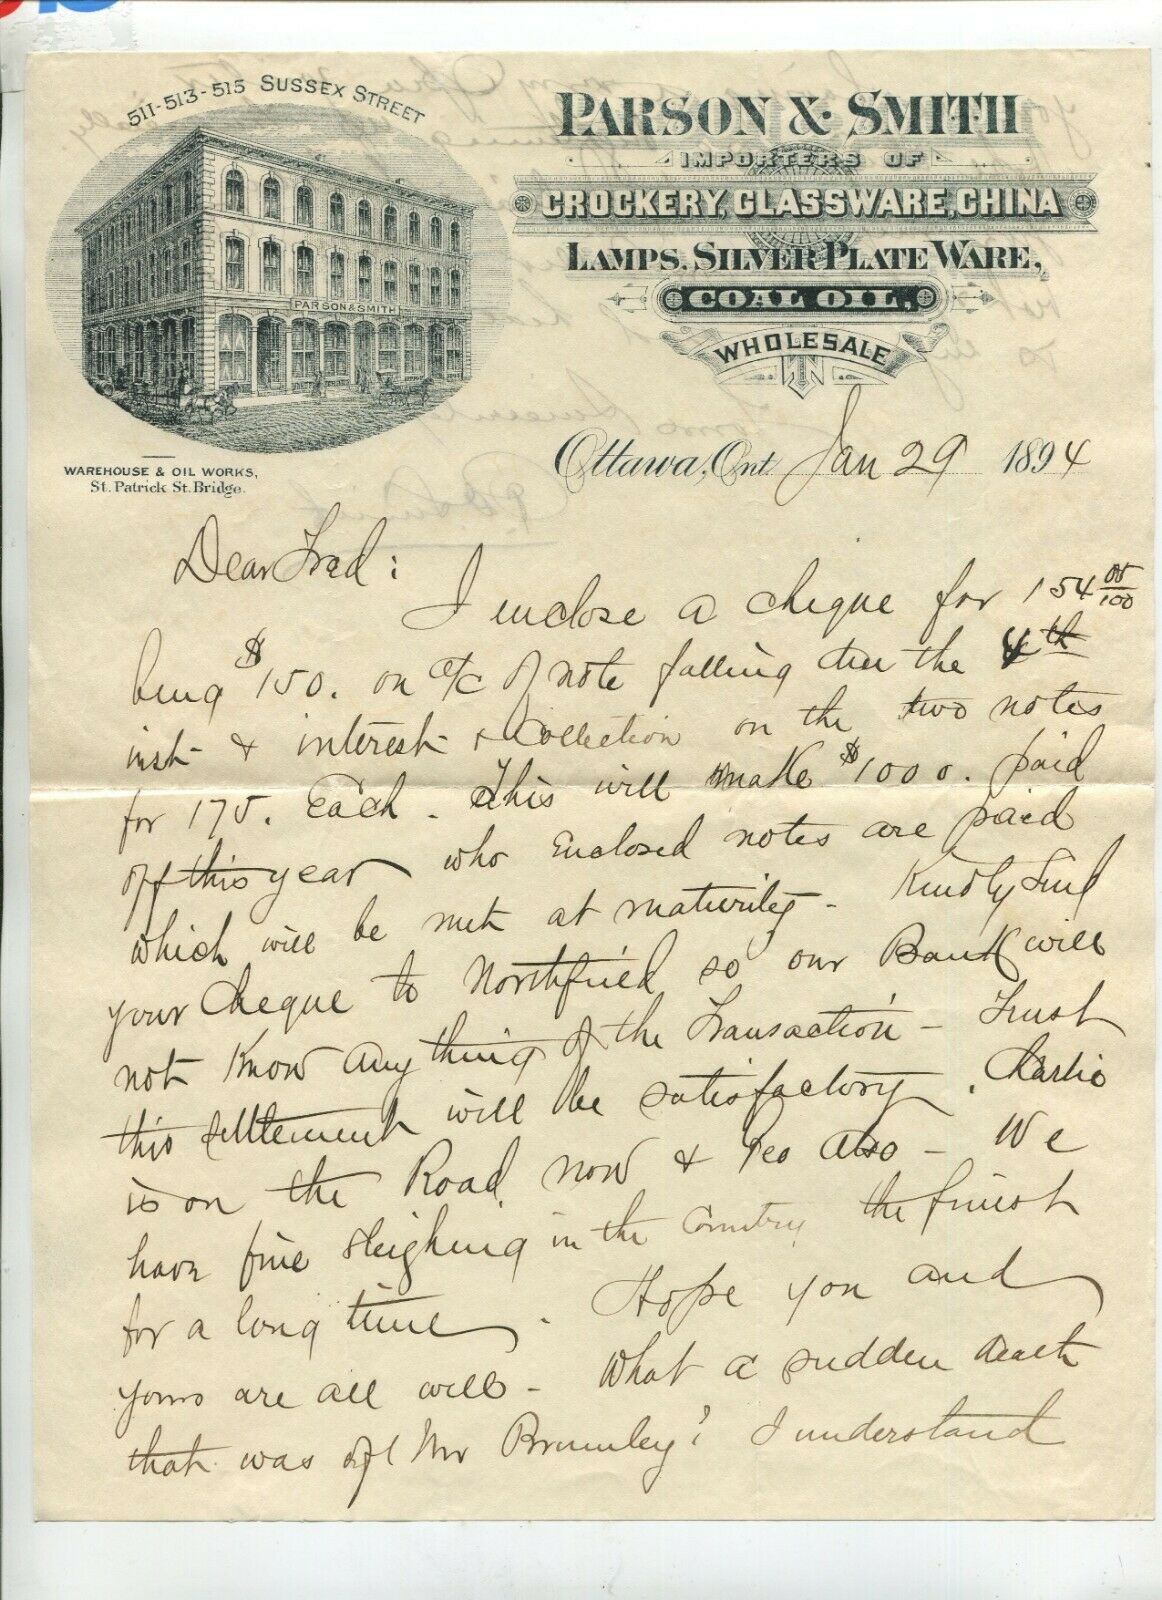 511-513-515 SUSSEX STREET
PARSON & SMITH
WAREHOUSE & OIL WORKS,
St. Patrick St. Bridge.
PARSON & SMITH
IMPORTERS OF
CROCKERY, GLASSWARE, CHINA
LAMPS, SILVER PLATE WARE,
COAL OIL,
WHOLESALE
Ottawa, Ont. Jan 29 1894
Dear Fred:
I enclose a cheque for 154 05/100
being $150. on a/c of note falling due the 4th
inst & interest & Collection on the two notes
for 175. Each. This will make $1000. paid
off this year who enclosed notes are paid
which will be met at maturity - Kindly send
your cheque to Northfield so our Bank will
not know any thing of the Transaction - Trust
this settlement will be satisfactory. Charlie
is on the Road now & Geo also - We
have fine sleighing in the Country the finest
for a long time. Hope you and
yours are all well - What a sudden death
that was of Mr Brumley! I understand